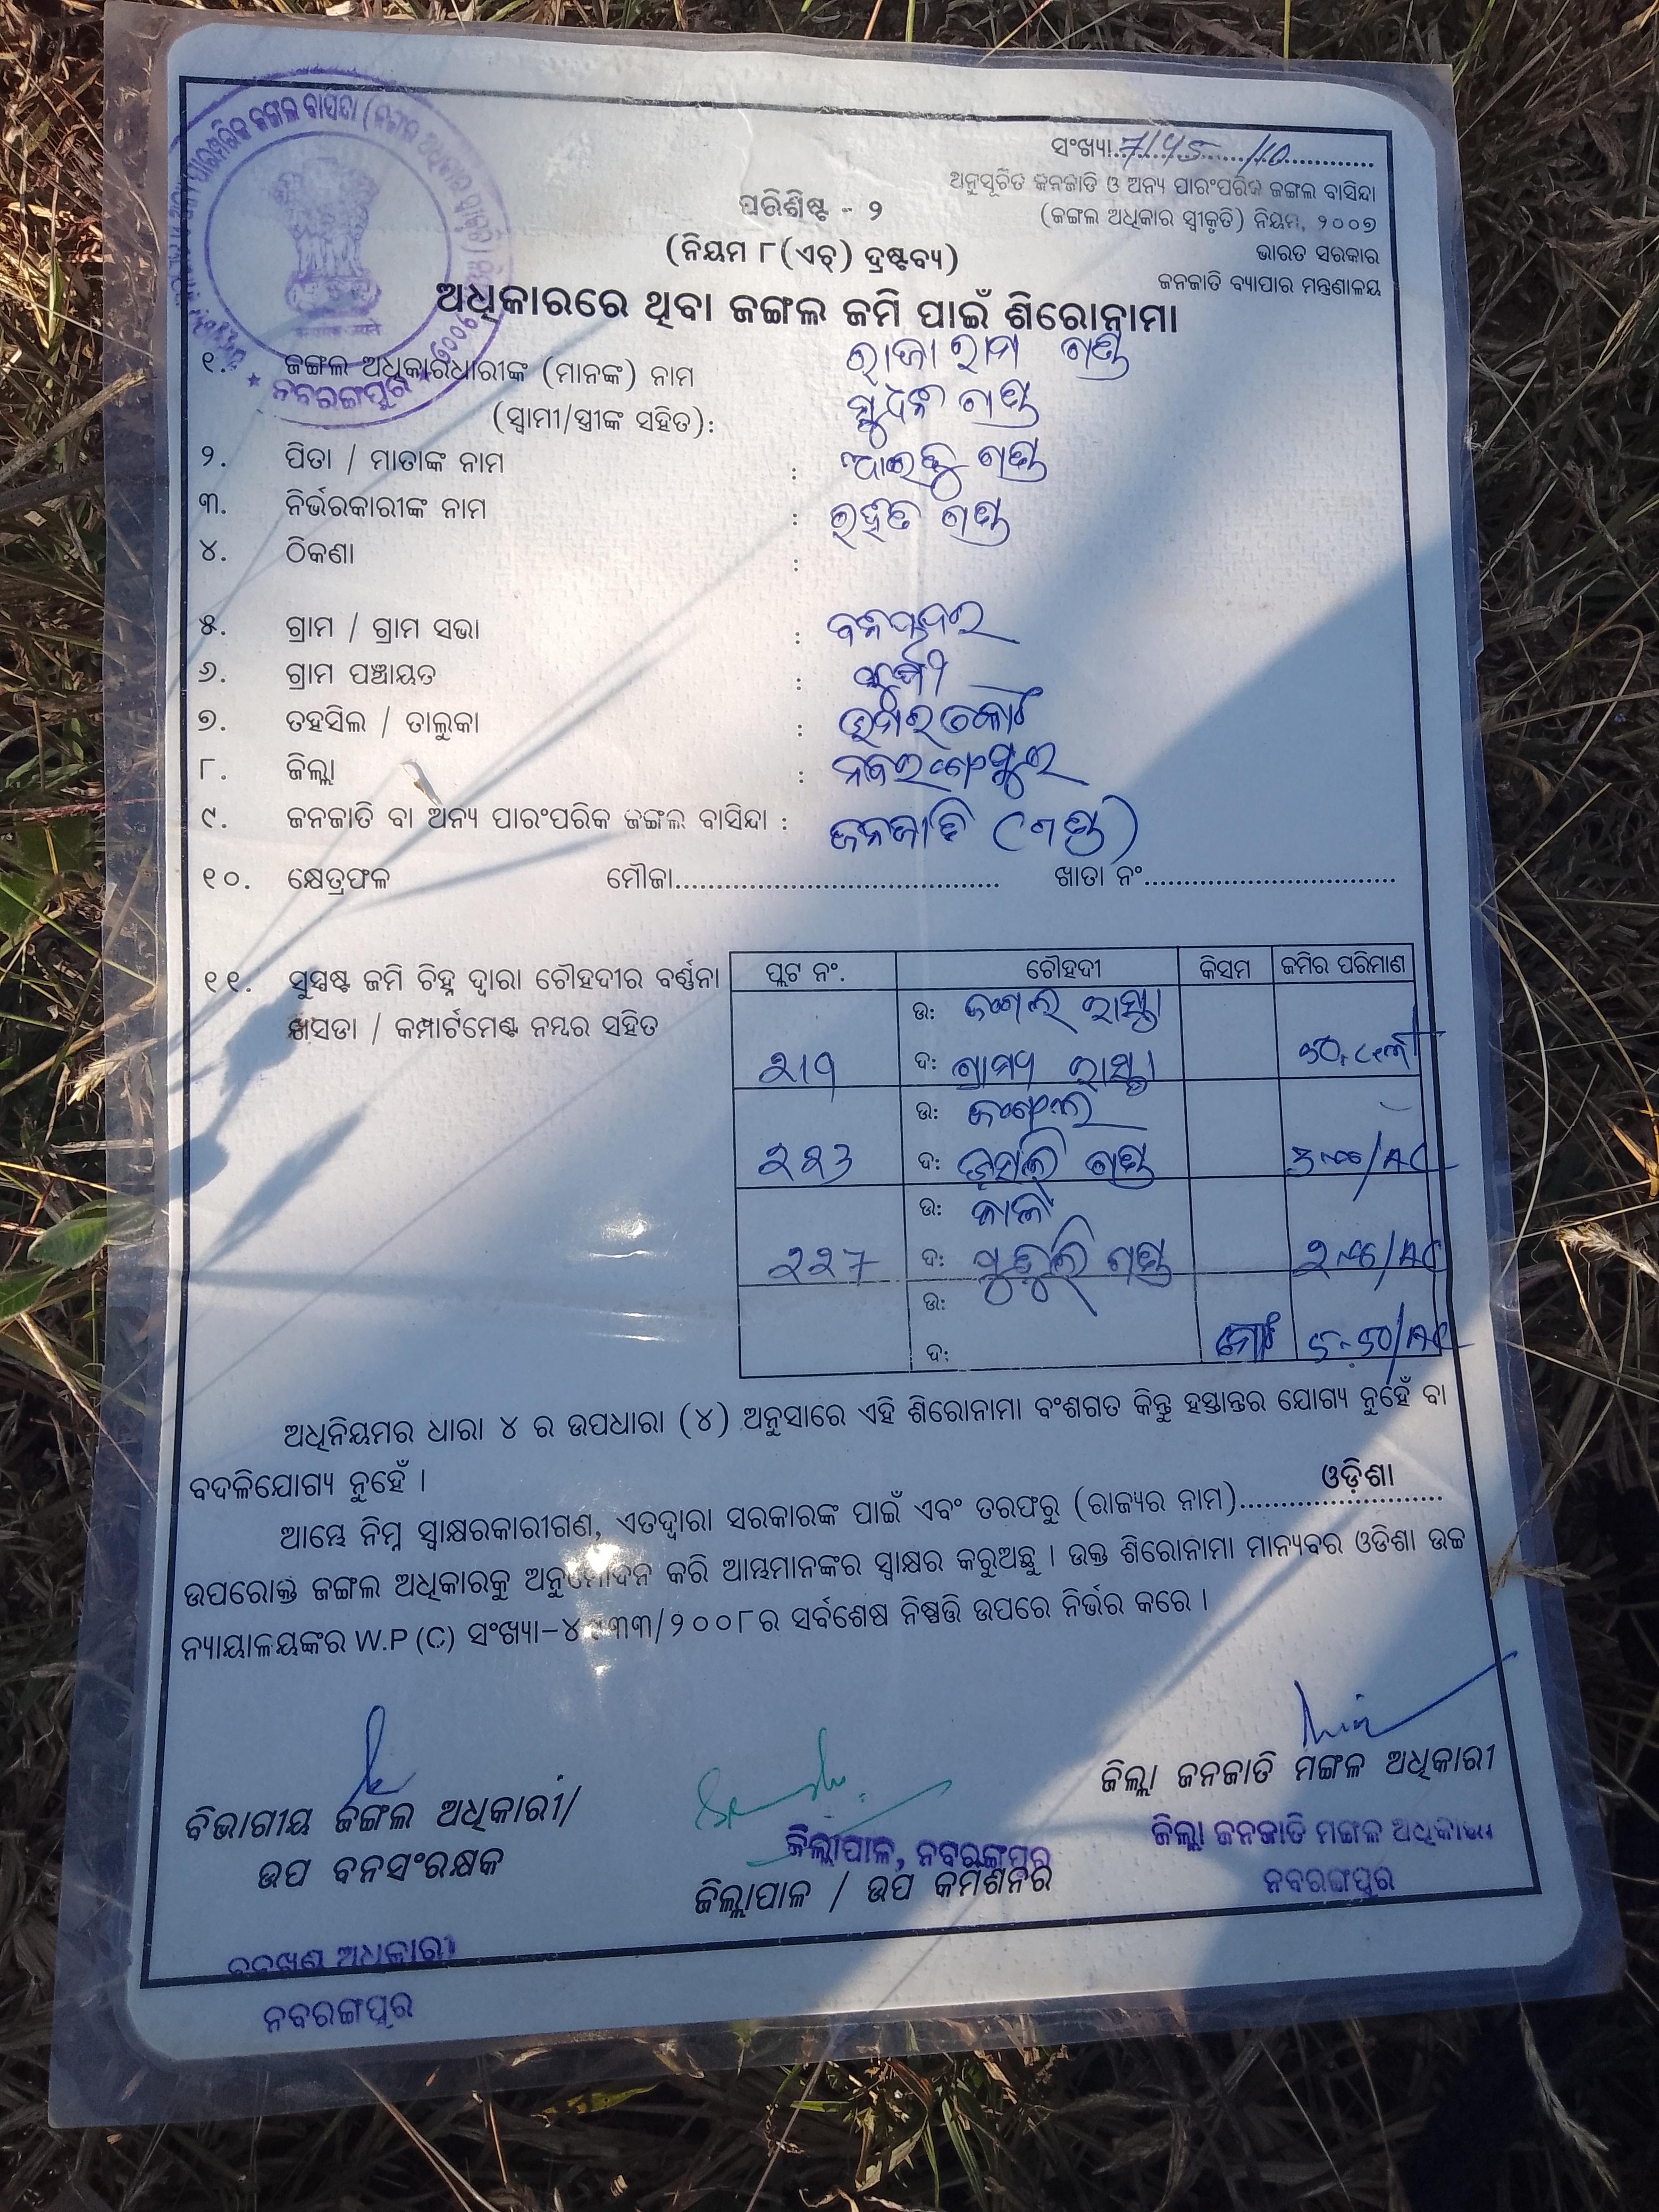 ସଂଖ୍ୟା 7/45 /10
ଅନୁସୂଚିତ ଜନଜାତି ଓ ଅନ୍ୟ ପାରଂପରିକ ଜଙ୍ଗଲ ବାସିନ୍ଦା
(ଜଙ୍ଗଲ ଅଧିକାର ସ୍ୱୀକୃତି) ନିୟମ, ୨୦୦୭
ଭାରତ ସରକାର
ଜନଜାତି ବ୍ୟାପାର ମନ୍ତ୍ରଣାଳୟ
ପରିଶିଷ୍ଟ - ୨
(ନିୟମ ୮(ଏଚ୍) ଦ୍ରଷ୍ଟବ୍ୟ)
ଅଧିକାରରେ ଥିବା ଜଙ୍ଗଲ ଜମି ପାଇଁ ଶିରୋନାମା
ନବରଙ୍ଗପୁର
୧. ଜଙ୍ଗଲ ଅଧିକାରଧାରୀଙ୍କ (ମାନଙ୍କ) ନାମ ରାଜା ରାମ ଗଣ୍ଡ
(ସ୍ୱାମୀ/ସ୍ତ୍ରୀଙ୍କ ସହିତ): ଗଣ୍ଡ
୨. ପିତା / ମାତାଙ୍କ ନାମ : ଗଣ୍ଡ
୩. ନିର୍ଭରକାରୀଙ୍କ ନାମ : ଗଣ୍ଡ
୪. ଠିକଣା :
୫. ଗ୍ରାମ / ଗ୍ରାମ ସଭା :
୬. ଗ୍ରାମ ପଞ୍ଚାୟତ :
୭. ତହସିଲ / ତାଲୁକା : ଉମରକୋଟ
୮. ଜିଲ୍ଲା : ନବରଂଗପୁର
୯. ଜନଜାତି ବା ଅନ୍ୟ ପାରଂପରିକ ଜଙ୍ଗଲ ବାସିନ୍ଦା : ଜନଜାତି (ଗଣ୍ଡ)
୧୦. କ୍ଷେତ୍ରଫଳ ମୌଜା........................................ ଖାତା ନଂ................................
୧୧. ସୁସ୍ପଷ୍ଟ ଜମି ଚିହ୍ନ ଦ୍ୱାରା ଚୌହଦୀର ବର୍ଣ୍ଣନା
ଖସଡା / କମ୍ପାର୍ଟମେଣ୍ଟ ନମ୍ବର ସହିତ
ପ୍ଲଟ ନଂ. ଚୌହଦୀ କିସମ ଜମିର ପରିମାଣ
ଉ: ଜଂଗଲ ରାସ୍ତା
୨୧୩ ଦ: ଗ୍ରାମ୍ୟ ରାସ୍ତା
ଉ: ଜଂଗଲ
୨୨୬ ଦ: ଗଣ୍ଡ
ଉ: ନାଳ
୨୨୭ ଦ: ଗଣ୍ଡ
ଉ:
ଦ: ମୋଟ 5-50/AC
ଅଧିନିୟମର ଧାରା ୪ ର ଉପଧାରା (୪) ଅନୁସାରେ ଏହି ଶିରୋନାମା ବଂଶଗତ କିନ୍ତୁ ହସ୍ତାନ୍ତର ଯୋଗ୍ୟ ନୁହେଁ ବା
ବଦଳିଯୋଗ୍ୟ ନୁହେଁ ।
ଆମ୍ଭେ ନିମ୍ନ ସ୍ୱାକ୍ଷରକାରୀଗଣ, ଏତଦ୍ୱାରା ସରକାରଙ୍କ ପାଇଁ ଏବଂ ତରଫରୁ (ରାଜ୍ୟର ନାମ) ଓଡ଼ିଶା
ଉପରୋକ୍ତ ଜଙ୍ଗଲ ଅଧିକାରକୁ ଅନୁମୋଦନ କରି ଆମ୍ଭମାନଙ୍କର ସ୍ୱାକ୍ଷର କରୁଅଛୁ । ଉକ୍ତ ଶିରୋନାମା ମାନ୍ୟବର ଓଡିଶା ଉଚ୍ଚ
ନ୍ୟାୟାଳୟଙ୍କର W.P (C) ସଂଖ୍ୟା-୪୯୩୩/୨୦୦୮ର ସର୍ବଶେଷ ନିଷ୍ପତ୍ତି ଉପରେ ନିର୍ଭର କରେ ।
ବିଭାଗୀୟ ଜଙ୍ଗଲ ଅଧିକାରୀ/
ଉପ ବନସଂରକ୍ଷକ
ବନଖଣ୍ଡ ଅଧିକାରୀ
ନବରଙ୍ଗପୁର
ଜିଲ୍ଲାପାଳ, ନବରଙ୍ଗପୁର
ଜିଲ୍ଲାପାଳ / ଉପ କମିଶନର
ଜିଲ୍ଲା ଜନଜାତି ମଙ୍ଗଳ ଅଧିକାରୀ
ଜିଲ୍ଲା ଜନଜାତି ମଙ୍ଗଳ ଅଧିକାରୀ
ନବରଙ୍ଗପୁର